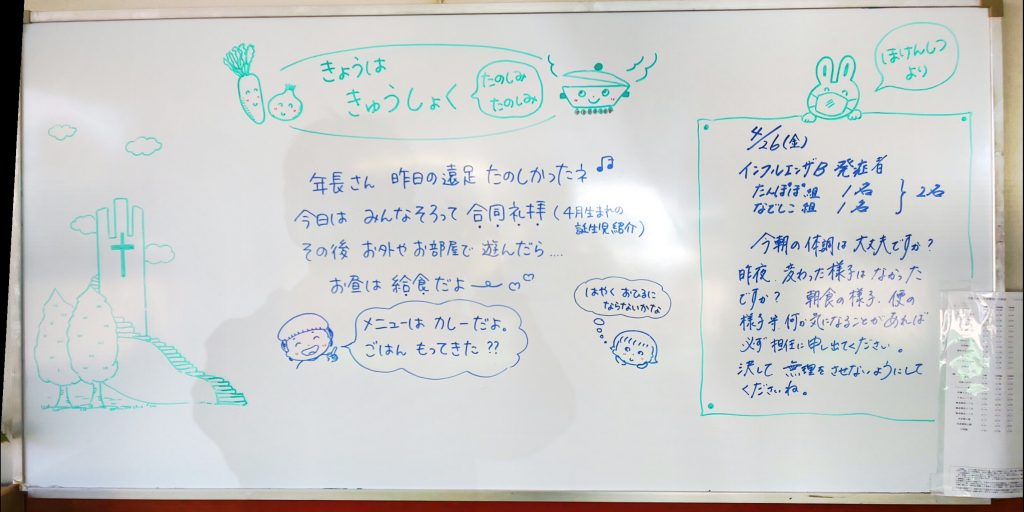 きょうは
きゅうしょく
たのしみ
たのしみ
ほけんしつ
より
年長さん 昨日の遠足 たのしかったネ♫
今日は みんなそろって 合同礼拝 (4月生まれの
誕生児紹介)
その後 お外やお部屋で 遊んだら....
お昼は 給食だよ〜♡♡
メニューは カレーだよ。
ごはん もってきた??
はやく おひるに
ならないかな
4/26(金)
インフルエンザB 発症者
たんぽぽ組 1名
なでしこ組 1名 } 2名
今朝の体調は大丈夫ですか?
昨夜、変わった様子はなかった
ですか? 朝食の様子、便の
様子等 何か気になることがあれば
必ず担任に申し出てください。
決して 無理をさせないようにして
くださいね。